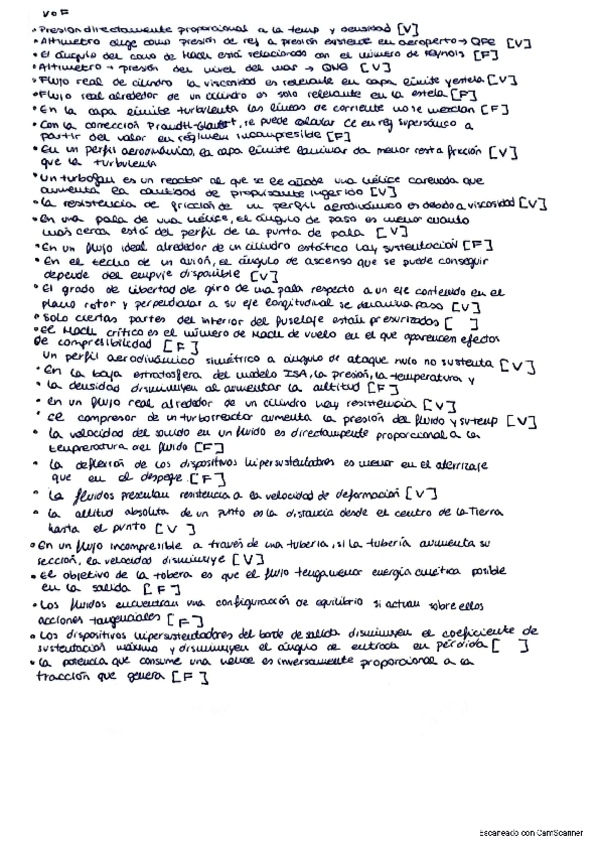 V o F
• Presion directamente proporcional a la temp y densidad [V]
• Altímetro elige como presión de ref a presión existente en aeropuerto → QFE [V]
• El ángulo del cono de Mach está relacionado con el número de Reynols [F]
• Altímetro → presión del nivel del mar → QNH [V]
• Flujo real de cilindro la viscosidad es relevante en capa límite y estela [V]
• Flujo real alrededor de un cilindro es solo relevante en la estela [F]
• En la capa límite turbulenta las líneas de corriente no se mezclan [F]
• Con la corrección Prandtl-Glauert, se puede calcular Ce en rég supersónico a
partir del valor en régimen incompresible [F]
• En un perfil aerodinámico, la capa límite laminar da menor resta fricción [V]
que la turbulenta
• Un turbofan es un reactor al que se le añade una hélice carenada que
aumenta la cantidad de propulsante ingerido [V]
• La resistencia de fricción de un perfil aerodinámico es debido a viscosidad [V]
• En una pala de una hélice, el ángulo de paso es menor cuanto
más cerca está del perfil de la punta de pala [V]
• En un flujo ideal alrededor de un cilindro estático hay sustentación [F]
• En el techo de un avión, el ángulo de ascenso que se puede conseguir
depende del empuje disponible [V]
• El grado de libertad de giro de una pala respecto a un eje contenido en el
plano rotor y perpendicular a su eje longitudinal se denomina paso [V]
• Solo ciertas partes del interior del fuselaje están presurizados [ ]
• El Mach crítico es el número de Mach de vuelo en el que aparencen efectos
de compresibilidad [F]
Un perfil aerodinámico simétrico a ángulo de ataque nulo no sustenta [V]
• En la baja estratosfera del modelo ISA, la presión, la temperatura y
• la densidad disminuyen al aumentar la altitud [F]
• en un flujo real alrededor de un cilindro hay resistencia [V]
• El compresor de un turborreactor aumenta la presión del fluido y su temp [V]
• La velocidad del sonido en un fluido es directamente proporcional a la
temperatura del fluido [F]
• La deflexión de los dispositivos hipersustentadores es menor en el aterrizaje
que en el despegue. [F]
• La fluidos presentan resistencia a la velocidad de deformación [V]
• La altitud absoluta de un punto es la distancia desde el centro de la Tierra
hasta el punto [V]
• En un flujo incompresible a través de una tubería, si la tubería aumenta su
sección, la velocidad disminuye [V]
• El objetivo de la tobera es que el flujo tenga menor energía cinética posible
en la salida [F]
• Los fluidos encuentran una configuración de equilibrio si actuan sobre ellos
acciones tangenciales [F]
• Los dispositivos hipersustentadores del borde de salida disminuyen el coeficiente de
sustentación máximo y disminuyen el ángulo de entrada en pérdida [ ]
• La potencia que consume una hélice es inversamente proporcional a la
tracción que genera [F]
Escaneado con CamScanner